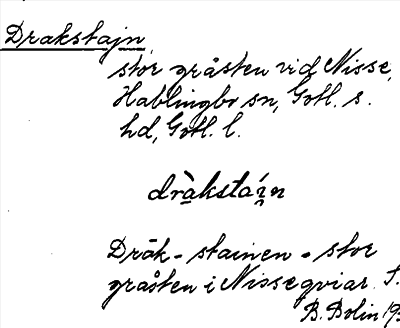 Drakstajn,
stor gråsten vid Nisse,
Hablingbo sn, Gotl. s.
hd, Gotl. l.
dràkstá́i̯n
Dräk-stainen - stor
gråsten i Nisseqviar.
B. Bolin